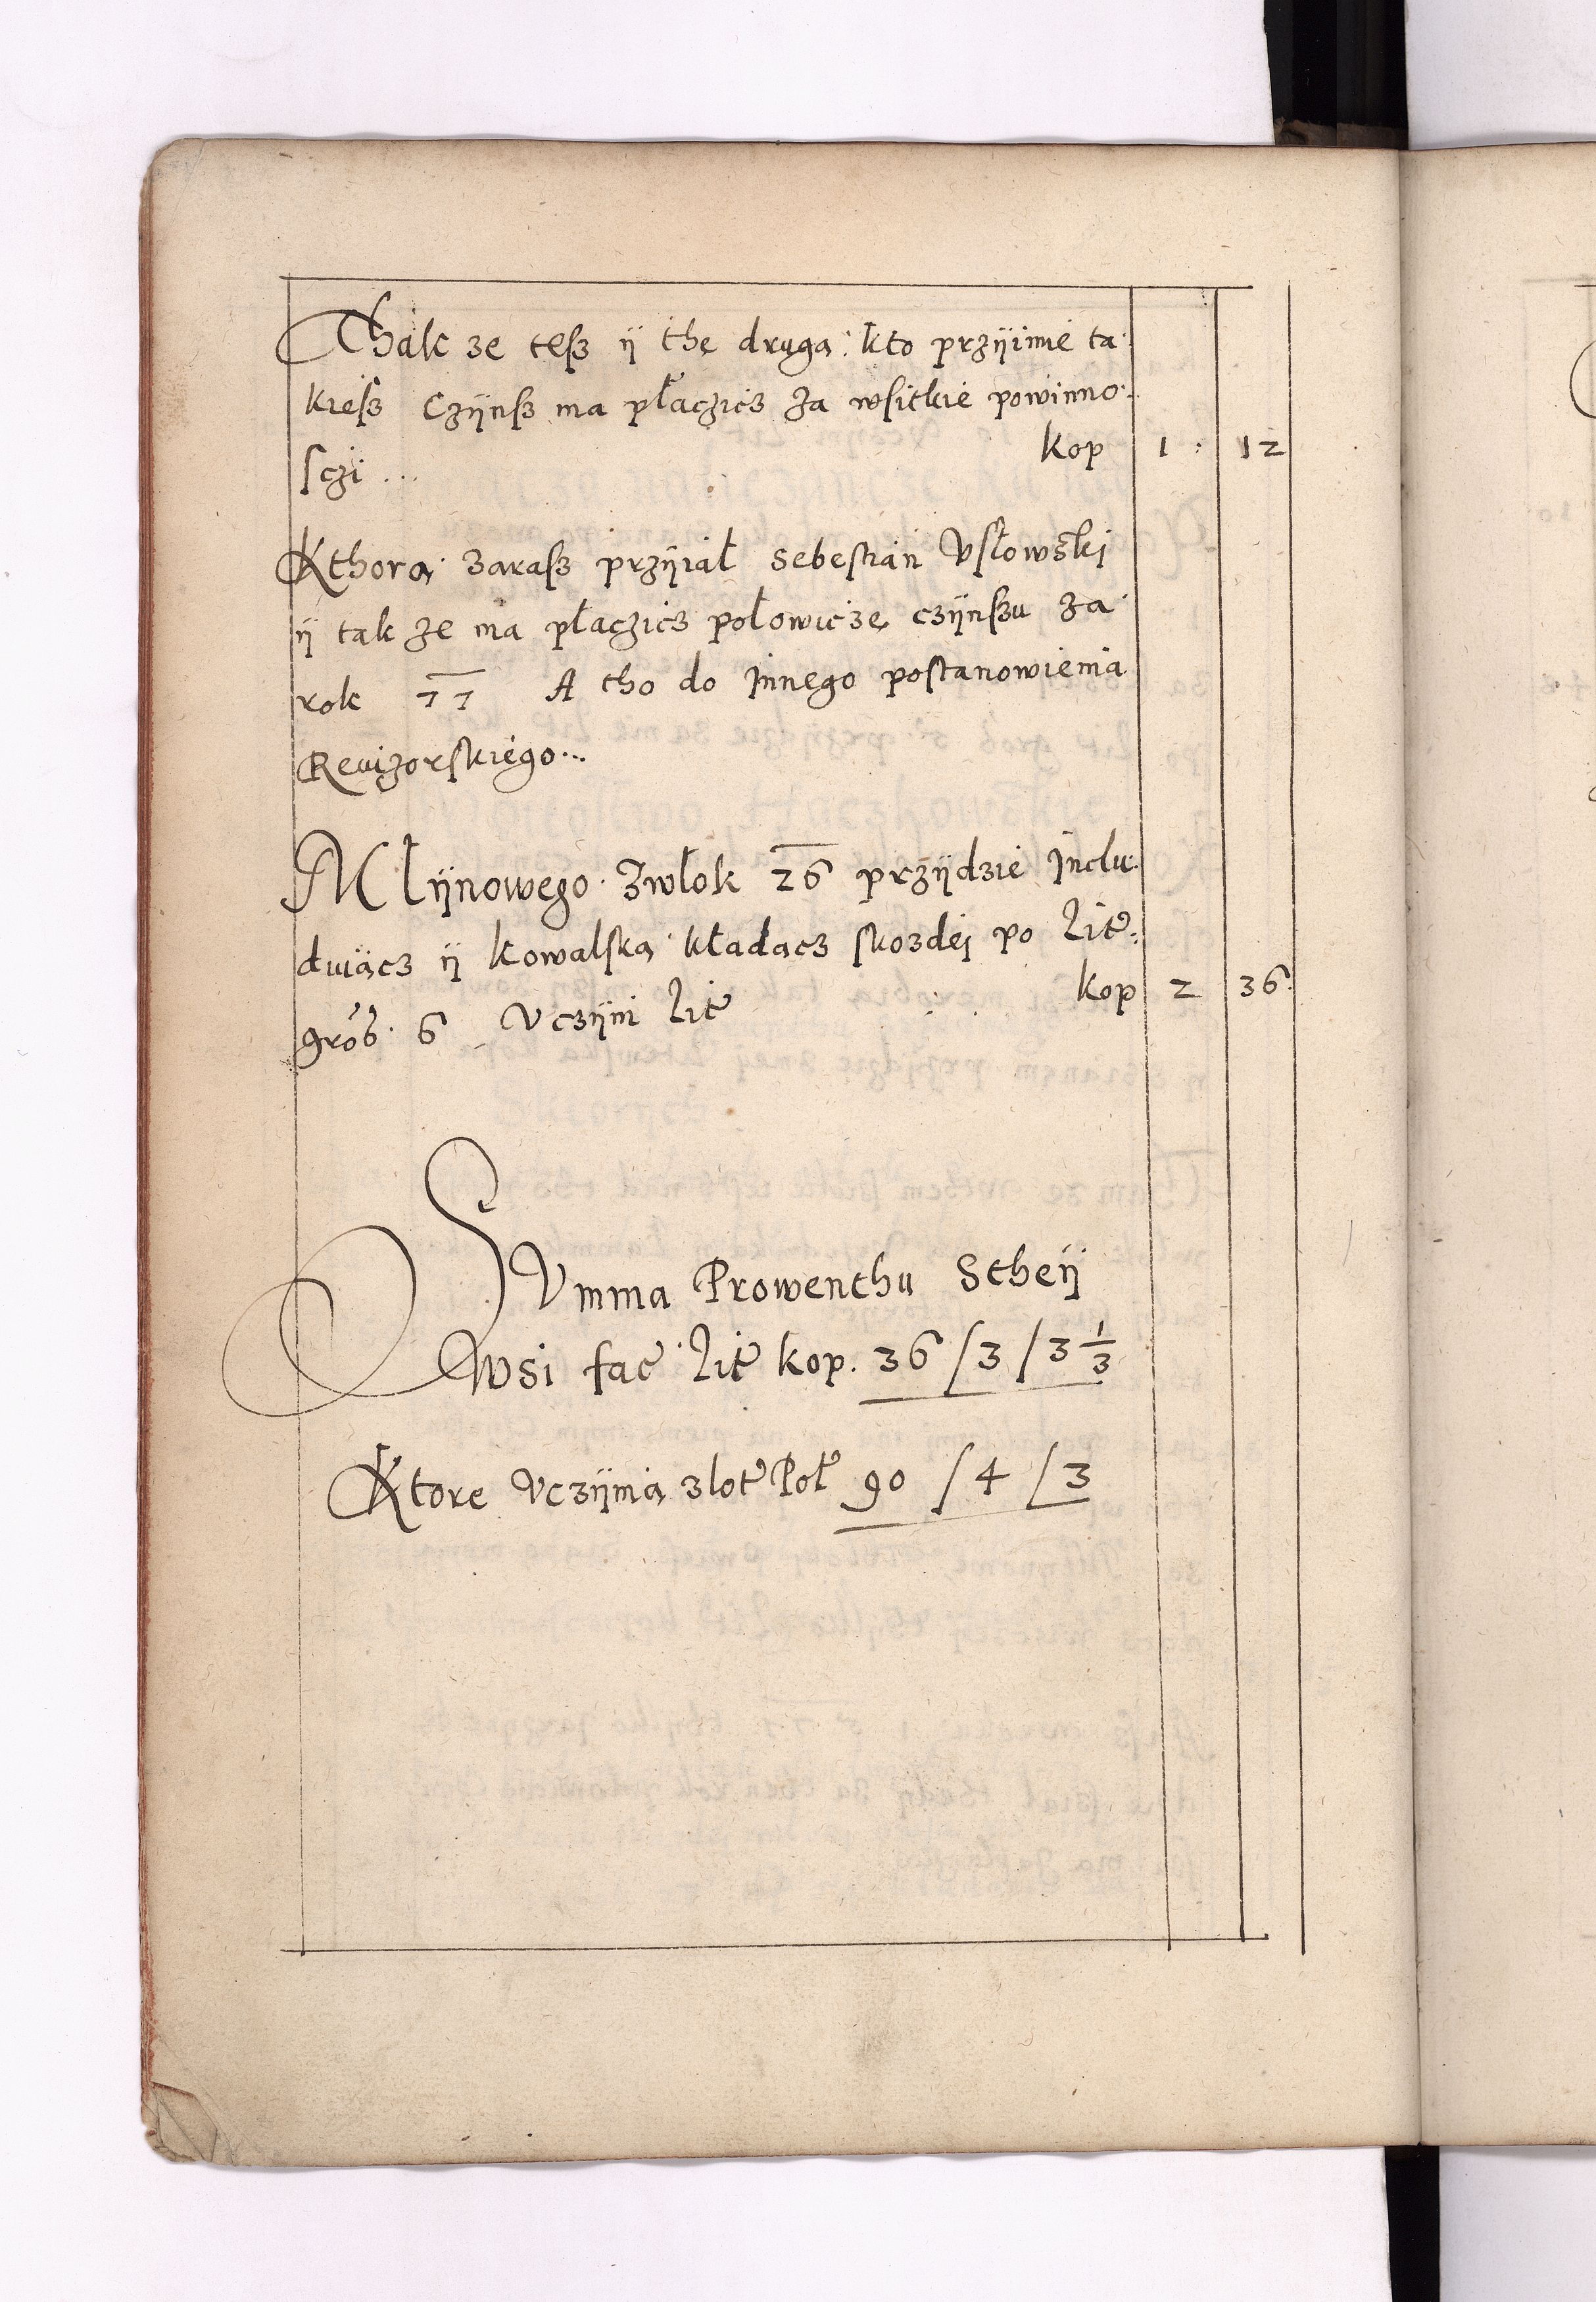 Thak ze teſz ÿ the druga kto przÿimie ta
kieſz Czÿnſz ma płaczicz za wſitkie powinno
ſczi ... kop 1 12
Kthora zaraſz przÿiał Sebeſtian Vſłowski
ÿ tak ze ma płaczicz połowicze czÿnſzu za
rok 77 A tho do Innego poſtanowienia
Revizorſkiego...
Młÿnowego zwłok 26 przÿdzie Inclu
duiącz ÿ kowalſka kładacz ſkozdei po Lit
groß 6 Vczÿni Lit kop 2 36
Svmma Prowenthu Stheÿ
Wsi fac Lit kop. 36 / 3 / 3 1/3
Ktore Vczÿnia zlot Poł 90 / 4 / 3